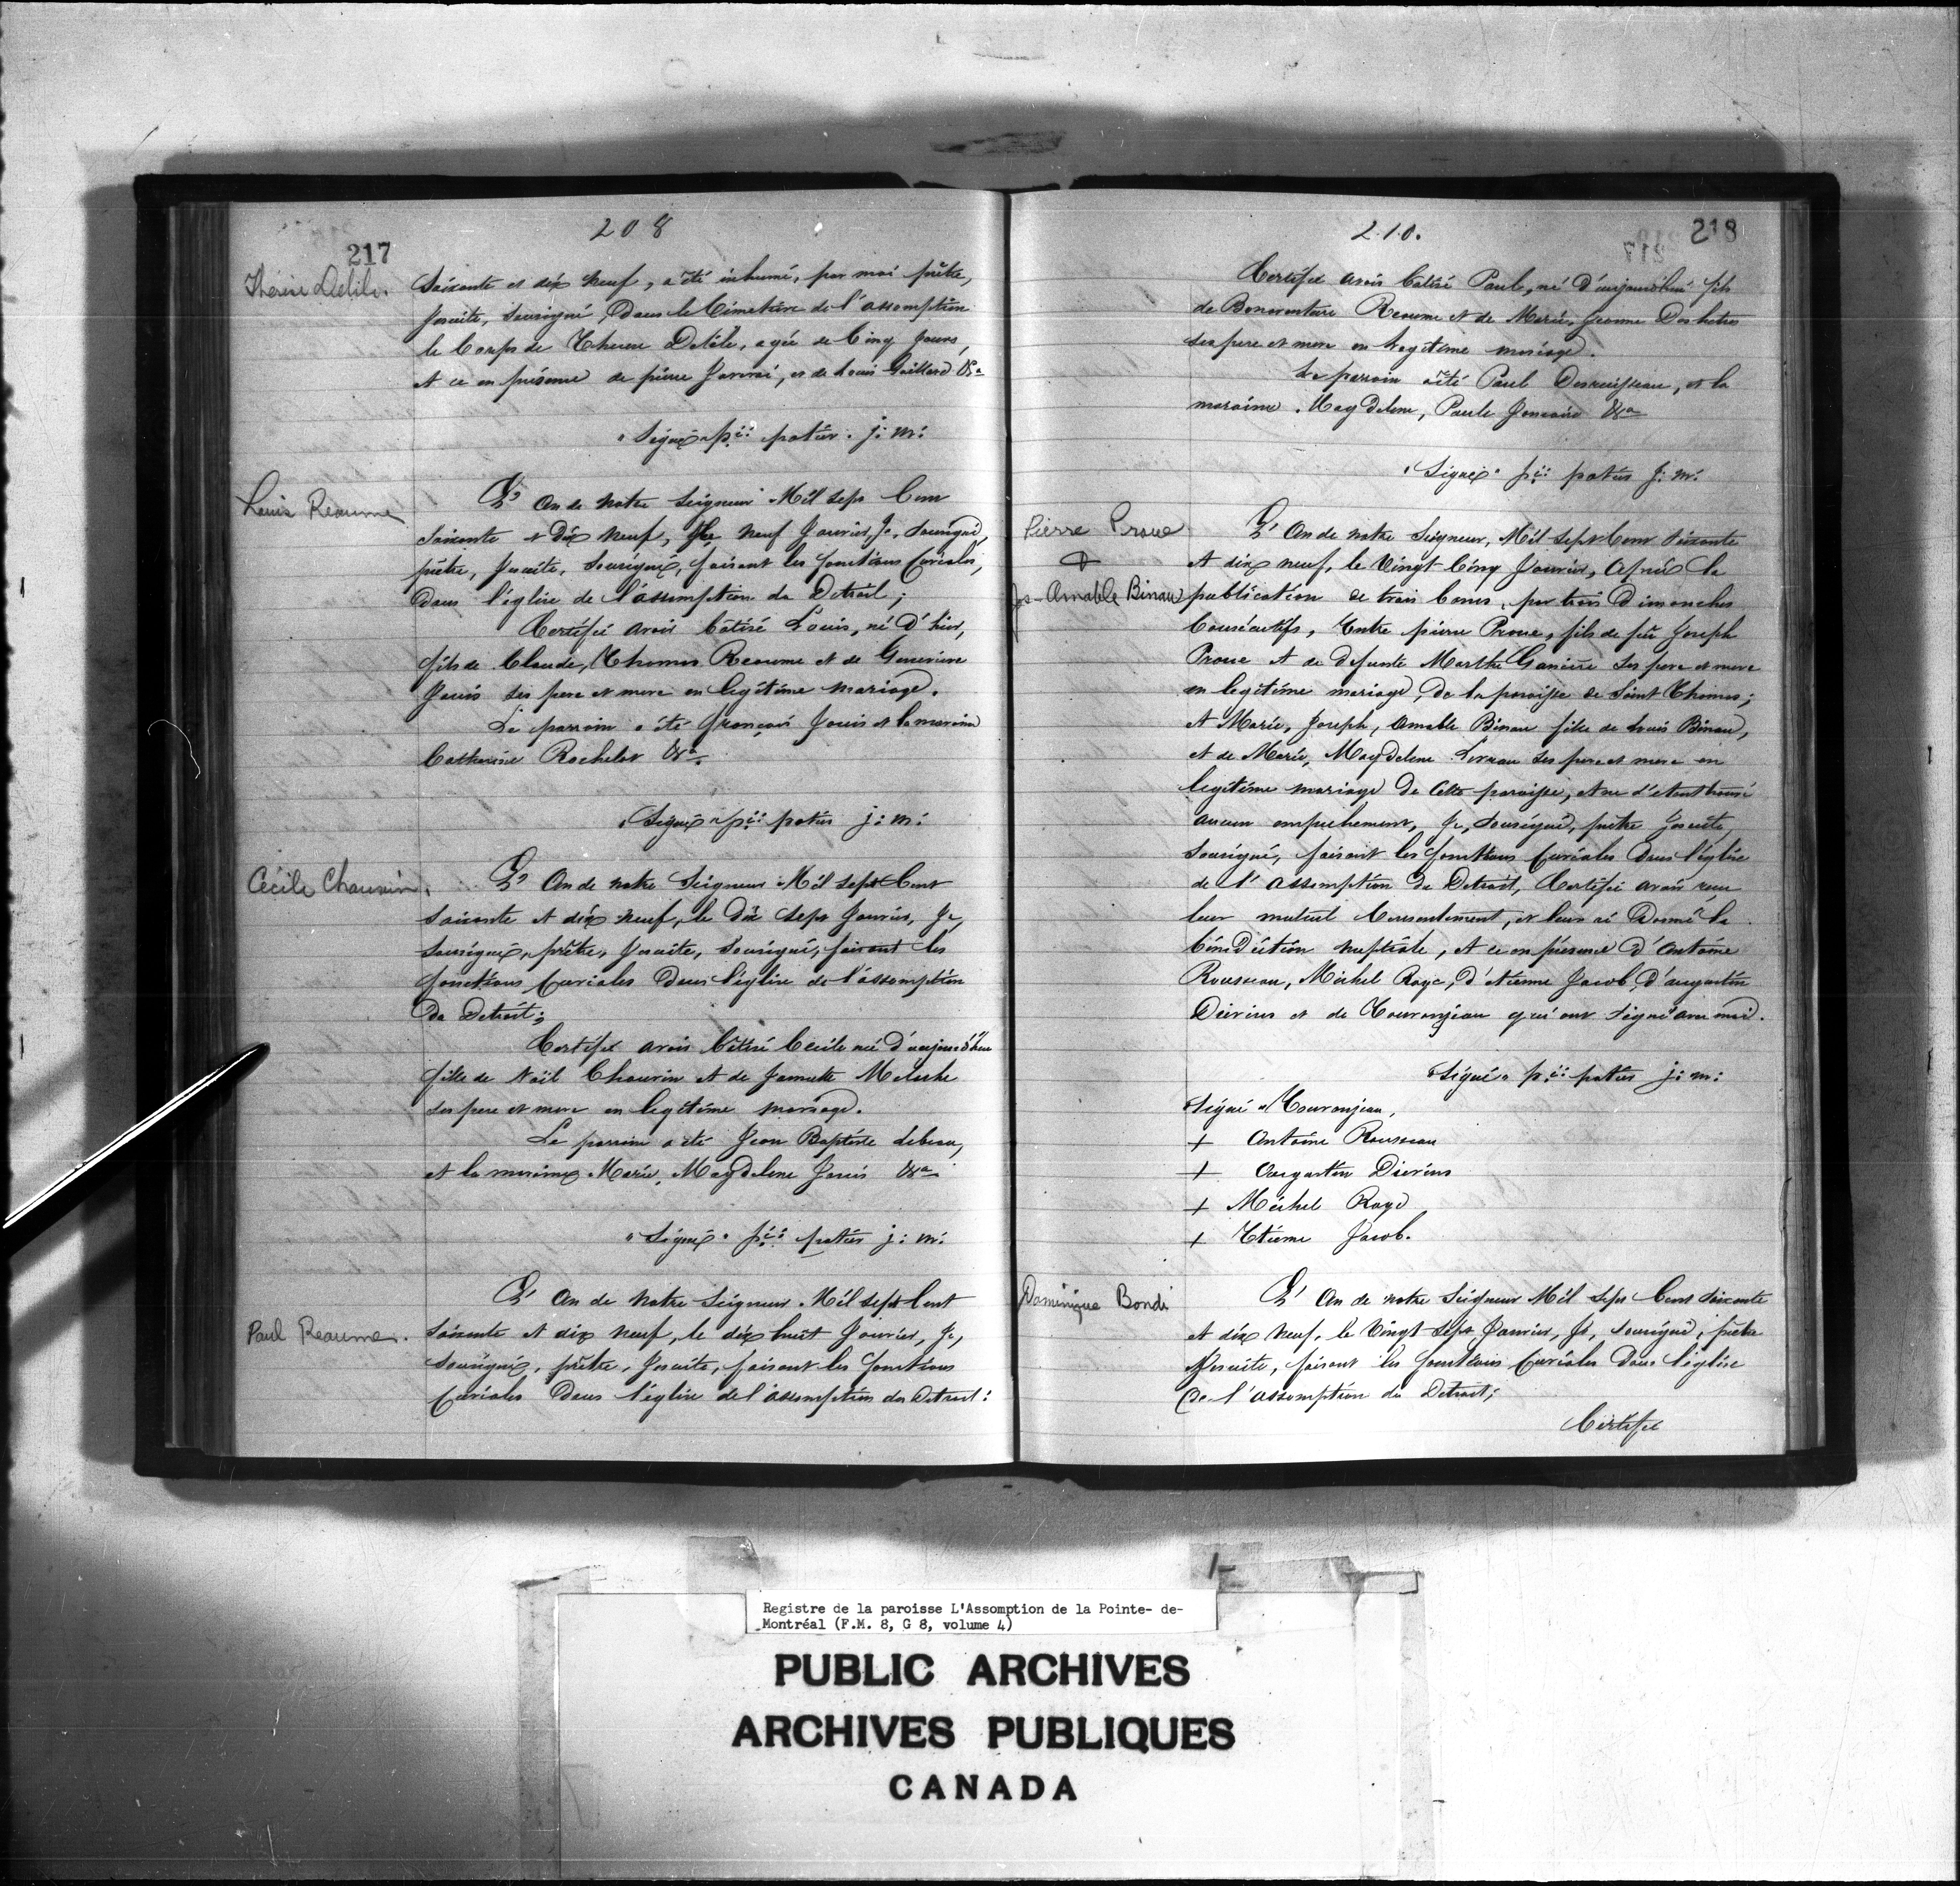 208
217
Thérèse Delile.
Soixante et dix neuf, a été inhumé, par moi prêtre,
Jesuite, Sousigné, dans le Cimetière de l'assomption
le Corps de Therese Delile, agée de Cinq Jours,
et ce en présence de pierre , et de Louis Gaillard &a
"Signé" p:re potier. j: m:
Louis Reaume
L'An de notre Seigneur Mil Sept Cent
soixante et dix neuf, le neuf Janvier, Je, Sousigné,
prêtre, Jesuite, Sousigné, faisant les fonctions Curiales,
Dans l'église de l'assomption du Detroit;
Certifié avoir batisé Louis, né d'hier,
fils de Claude, Thomas Reaume et de Genevieve
Janis ses pere et mere en legitime mariage.
Le parrain a été françois Janis et la maraine
Catherine Rochelot &a.
"Signé" p:re potier j: m:
Cécile Chauvin.
L'An de notre Seigneur Mil sept Cent
soixante et dix neuf, le dix sept Janvier, Je,
sousigné, prêtre, Jesuite, Sousigné, faisant les
fonctions Curiales dans l'église de l'assomption
du Detroit;
Certifié avoir batisé Cecile née d'aujourd'hui
fille de Noël Chauvin et de Jannette Meloche
ses pere et mere en legitime mariage.
Le parrain a été Jean Baptiste Lebeau,
et la maraine Marie, Magdelene Janis &a
"Signé" p:re potier j: m:
Paul Reaume.
L'An de notre Seigneur Mil sept Cent
Soixante et dix neuf, le dix huit Janvier, Je,
Sousigné, prêtre, Jesuite, faisant les fonctions
Curiales Dans l'église de l'assomption du Detroit:
210.
218
217
Certifié avoir batisé Paul, né d'aujourd'hui fils
de Bonaventure Reaume et de Marie, Jeanne Deshetres
ses pere et mere en legitime mariage.
Le parrain a été Paul Desruisseau, et la
maraine Magdelene, Paule Joncaire &a
"Signé" p:re potier j: m:
Pierre Proue
+
Js-Amable Binau
L'An de notre Seigneur, Mil sept Cent Soixante
et dix neuf, le Vingt Cinq Janvier, Après la
publication de trois bancs, par trois Dimanches
Consécutifs, Entre pierre Proue, fils de feu Joseph
Proue et de defunte Marthe Ganiere ses pere et mere
en legitime mariage, de la paroisse de Saint Thomas;
et Marie, Joseph, Amable Binau fille de Louis Binau,
et de Marie, Magdelene ses pere et mere en
legitime mariage de Cette paroisse, et ne s'etant trouvé
aucun empechement, Je, Sousigné, prêtre Jesuite,
Sousigné, faisant les fonctions Curiales dans l'église
de l'assomption du Detroit, Certifié avoir reçu
leur mutuel Consentement, et leur ai donné la
bénédiction nuptiale, et ce en présence d'Antoine
Rousseau, Michel Roye, d'Etienne Jacob, d'augustin
et de Touronjeau qui ont signé avec moi.
"Signé" p:re potier j: m:
Signé "Touronjeau,
+ Antoine Rousseau
+ Augustin
+ Michel Roye
+ Etienne Jacob.
Dominique Bondi
L'An de notre Seigneur Mil sept Cent soixante
et dix neuf, le Vingt sept Janvier, Je, sousigné, prêtre
Jesuite, faisant les fonctions Curiales Dans l'église
de l'assomption du Detroit;
Certifié
1-
Registre de la paroisse L'Assomption de la Pointe- de-
Montréal (F.M. 8, G 8, volume 4)
PUBLIC ARCHIVES
ARCHIVES PUBLIQUES
CANADA